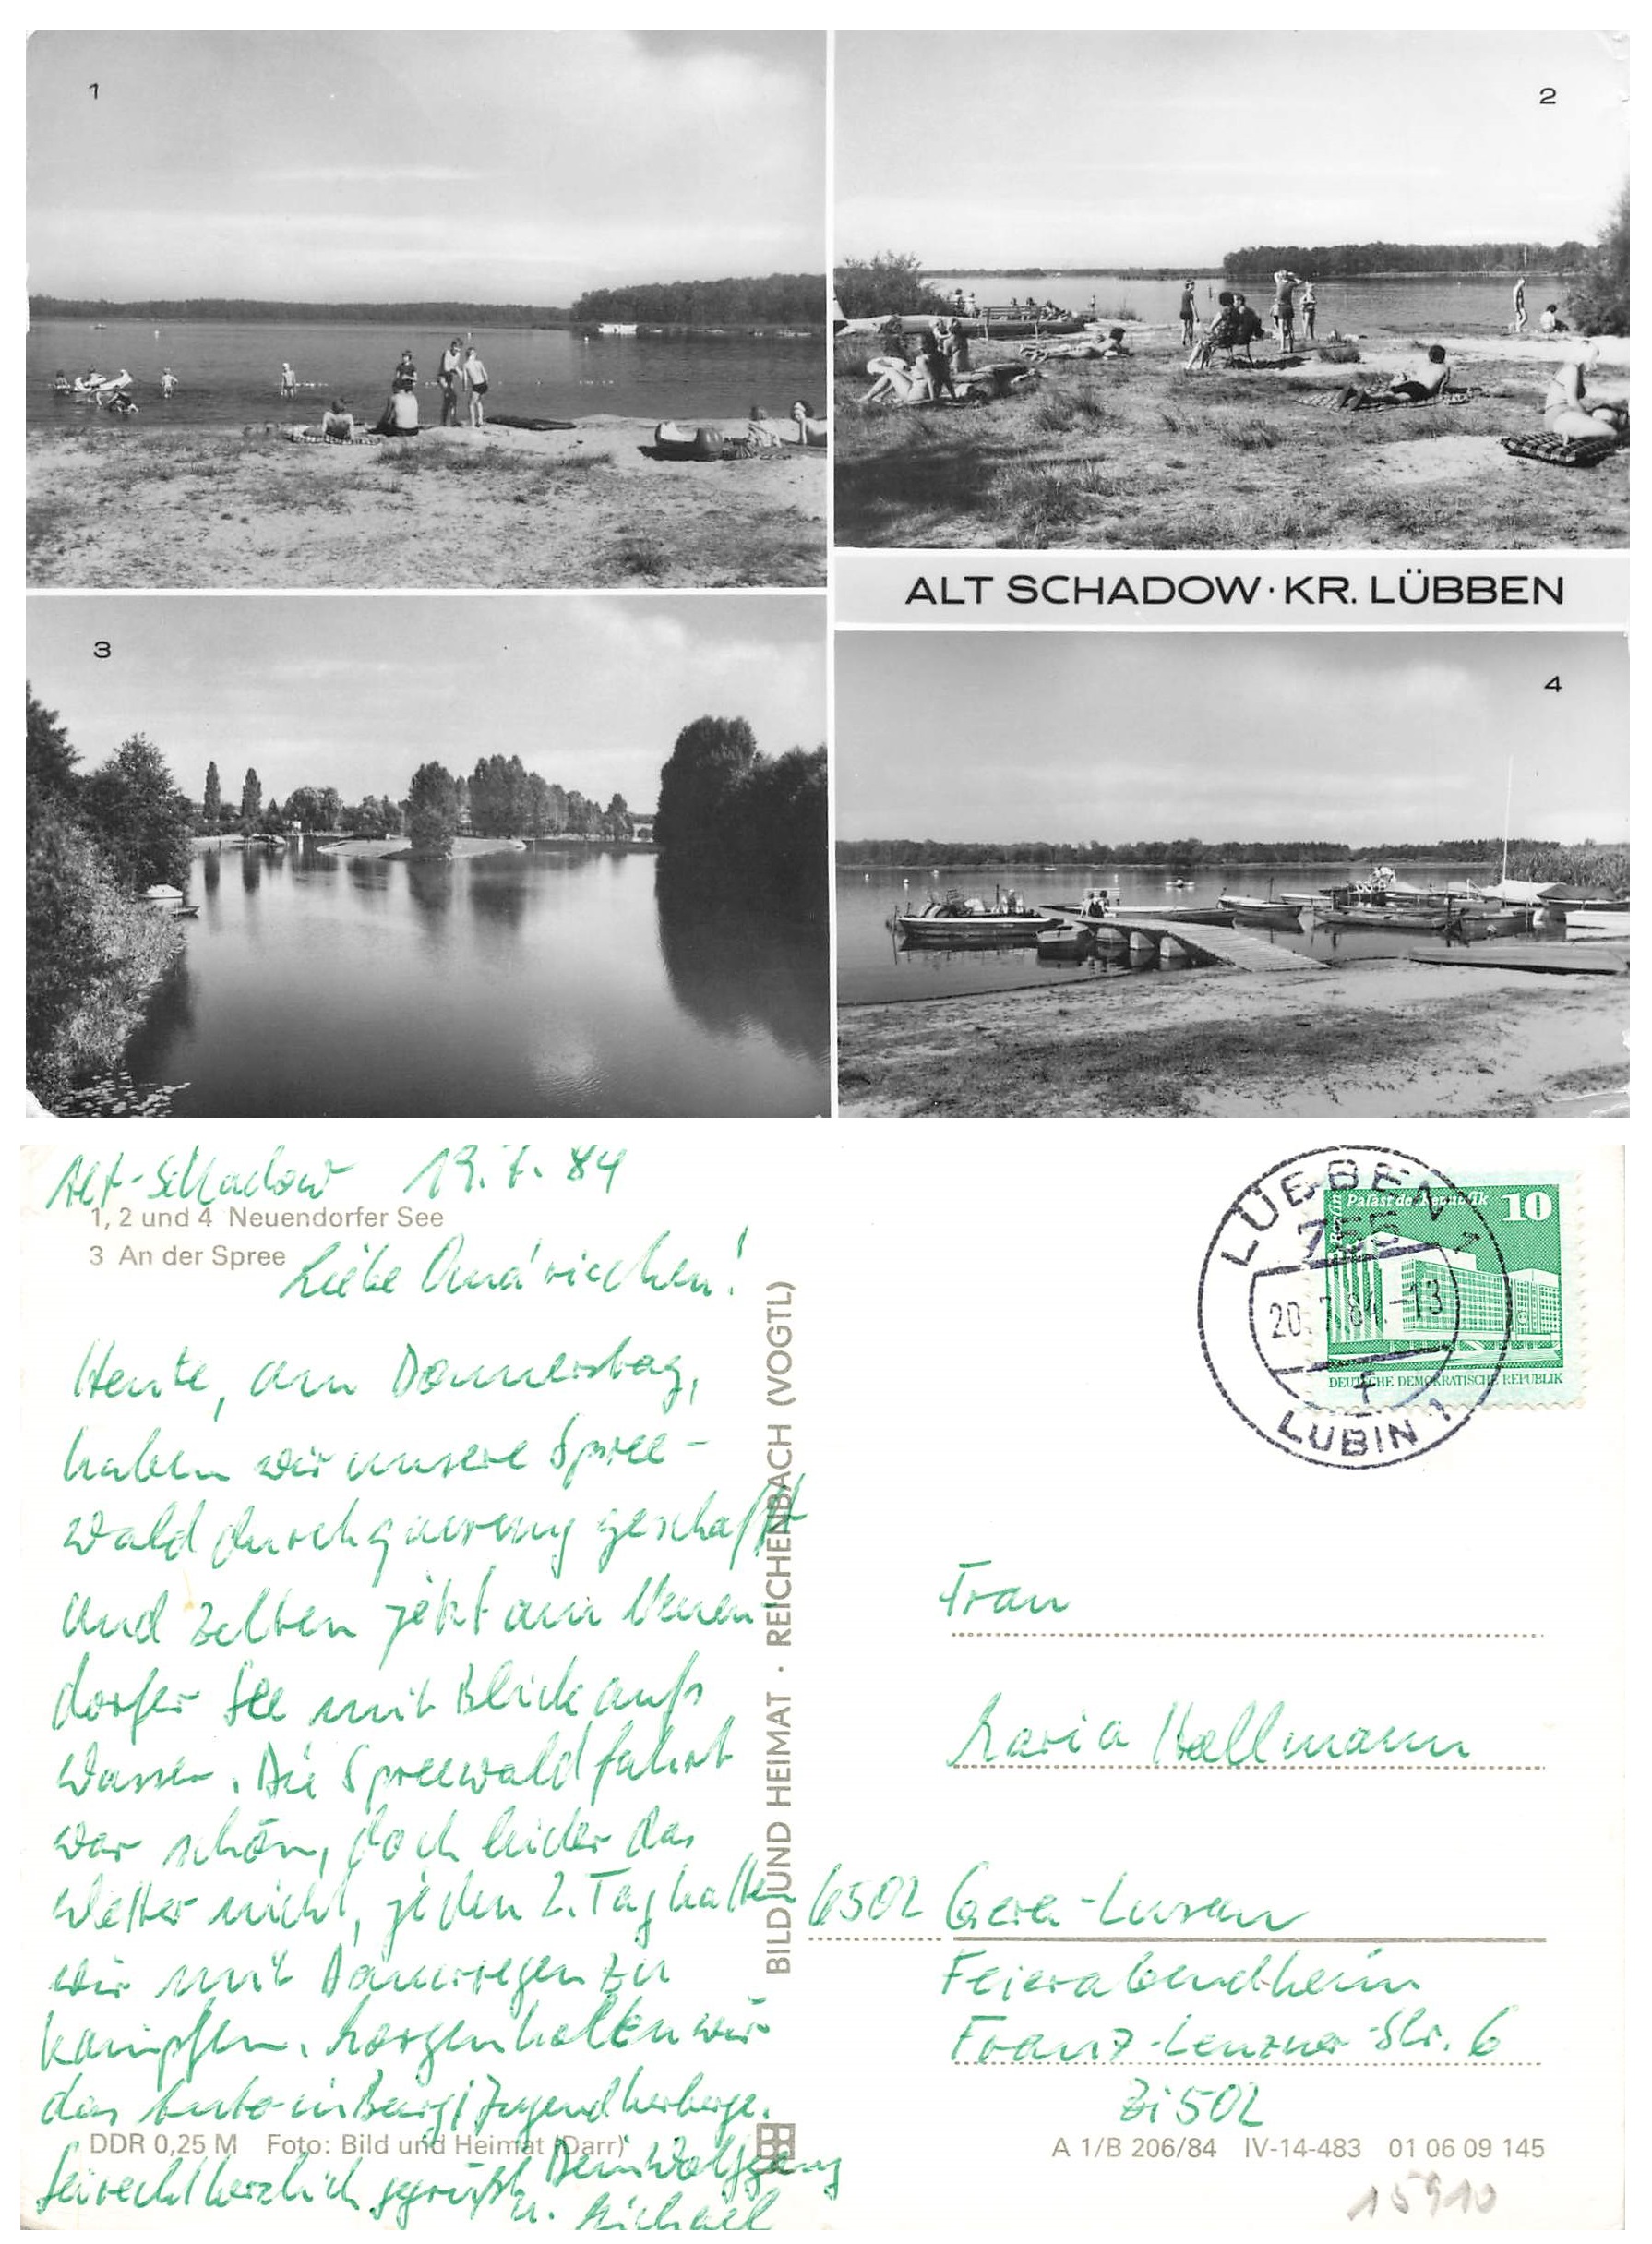 1
2
ALT SCHADOW · KR. LÜBBEN
3
4
Alt-Schadow 19.7.84
1, 2 und 4 Neuendorfer See
3 An der Spree
Liebe
Heute, am Donnerstag,
haben wir unsere Spree-
walddurchquerung geschafft
und zelten jetzt am Neuen-
dorfer See mit Blick aufs
Wasser. Die Spreewaldfahrt
war schön, doch leider das
Wetter nicht, jeden 2. Tag hatten
wir mit Dauerregen zu
kämpfen. Morgen holten wir
das Auto in Burg/Jugendherberge.
Sei recht herzlich gegrüßt Dein Wolfgang
u. Michael
DDR 0,25 M Foto: Bild und Heimat (Darr)
BILD UND HEIMAT · REICHENBACH (VOGTL)
LÜBBEN 1
755
20.7.84.-13
f
LUBIN 1
Berlin Palast der Republik 10
DEUTSCHE DEMOKRATISCHE REPUBLIK
Frau
Maria Hallmann
6502 Gera-Lusan
Feierabendheim
Franz-Lenzner-Str. 6
Zi 502
A 1/B 206/84 IV-14-483 01 06 09 145
15910